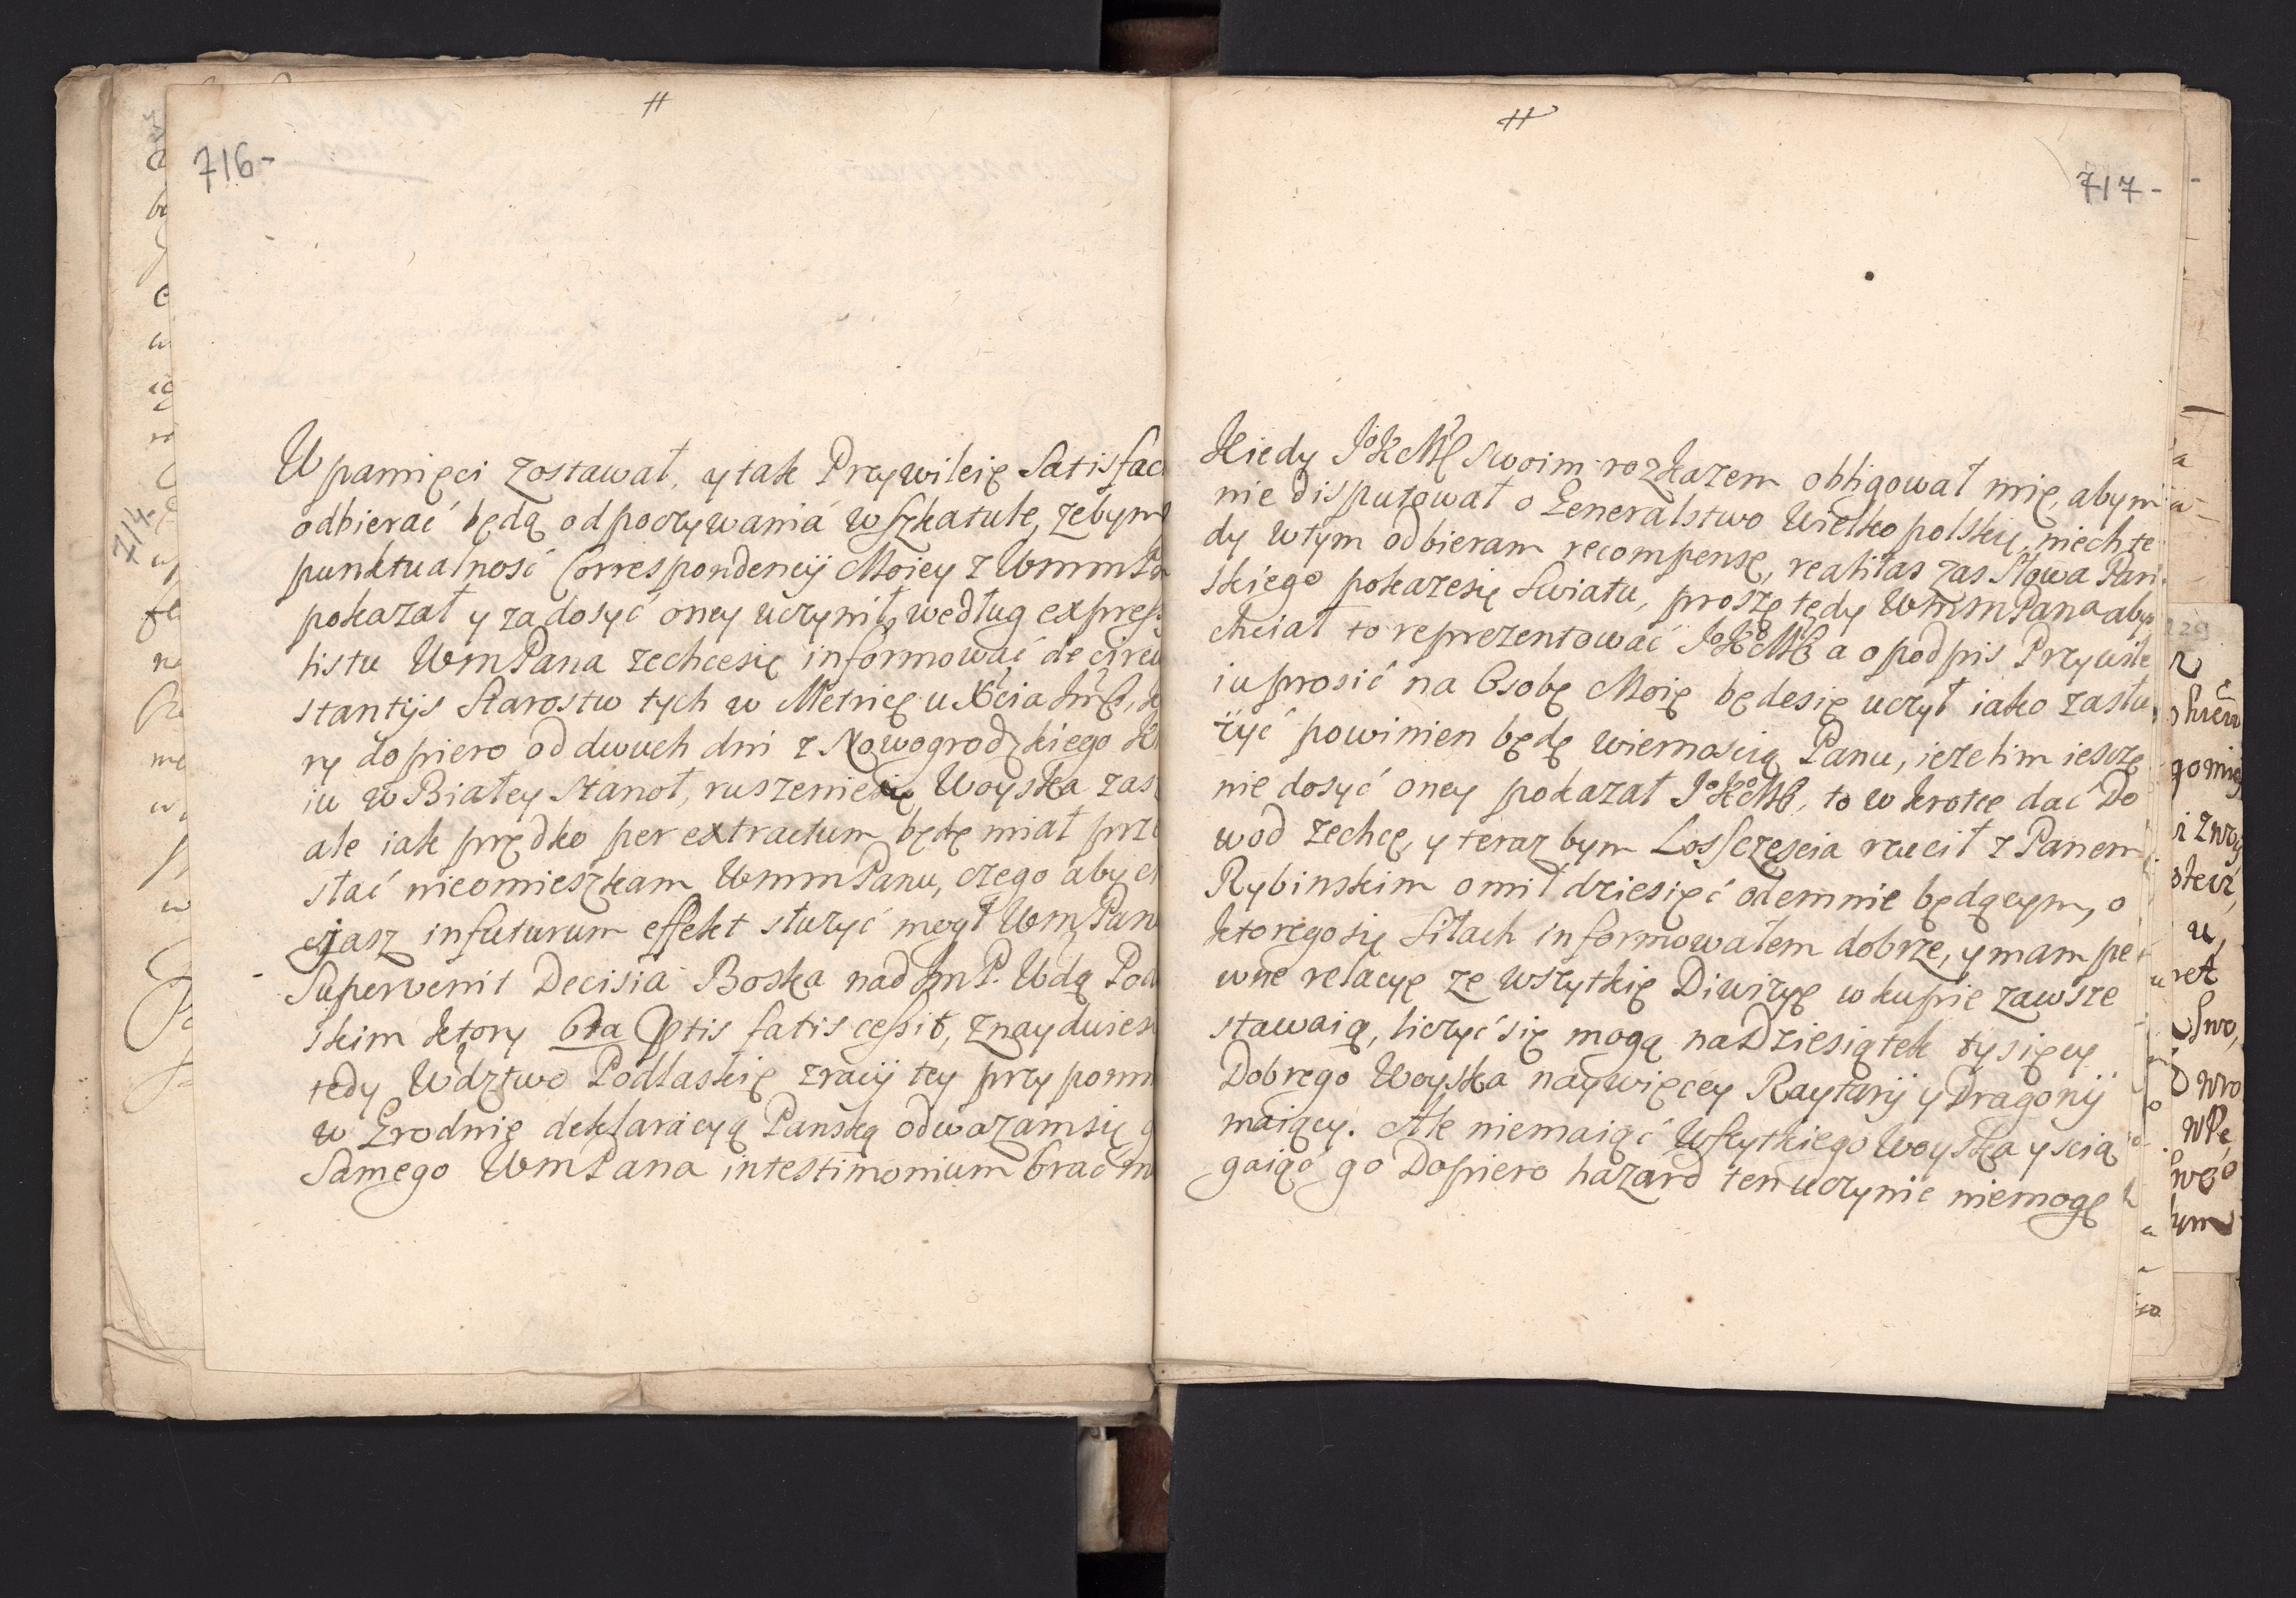 #
716-
W pamięci zostawał, y tak Przywileię Satisfac
odbierać będą odpoczywania w szkatule, zebym
punktualność Correspondencij Moiey z WmmPa
pokazał y zadosyć oney uczynił, według expres
listu WmPana zechcesię informować de circu
stantijs Starostw tych w Metricę u Xcia
ry dopiero od dwuch dni z Nowogrodzkiego
iu w Białey stanoł, ruszenie Woyska zas
ale iak prędko per extractum będę miał prze
słać nieomieszkam WmmPanu, czego aby
infuturum effekt służyć mogł WmPan
Supervenit Decisia Boska nad JmP. Wdą Pod
skim ktory fatis cessit, znayduies
tedy Wdztwo Podlaskię zracij tey przy pomn
w Grodnię deklaracyą Panską odwazamsię
Samego WmPana intestimonium brać
#
717-
Kiedy JoKcMść swoim rozkazem obligował mię, abym
nie disputował o Generalstwo Wielkopolskię, niech te
dy wtym odbieram recompensę, realitas zas Słowa Pan
skiego pokazesię Swiatu, proszę tędy WmmPana aby
chciał to reprezentować JoKcMść a o podpis Przywile
iu prosić na Osobę Moię będesię uczył iako zasłu
żyć powinien będę wiernoscią Panu, iezelim iescze
nie dosyć oney pokazał JoKcMść, to w krotce dać Do
wod zechcę, y teraz bym Los sczęscia rzucił z Panem
Rybinskim o mil dziesięć odemnie będącym, o
ktoregosię siłach informowałem dobrze, y mam pe
wne relacyę ze wszytkię Diwizyę w kupie zawsze
stawaią, liczyć się mogą na Dziesiątek tysięcy
Dobrego Woyska naywięcey Raytarij y Dragonij
maiący. Ale niemaiąć Wszytkiego Woyska y scią
gaiąć go Dopiero hazard ten uczynic niemogę
714-
129